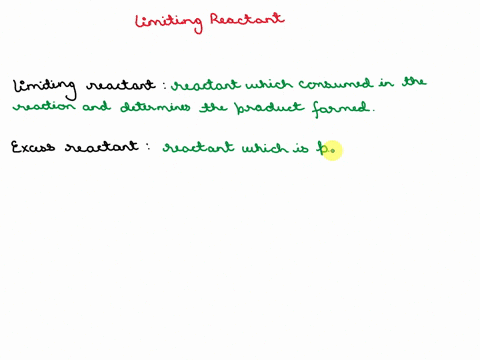 Limiting Reactant
Limiting reactant : reactant which consumed in the
reaction and determines the product formed.
Excess reactant : reactant which is p